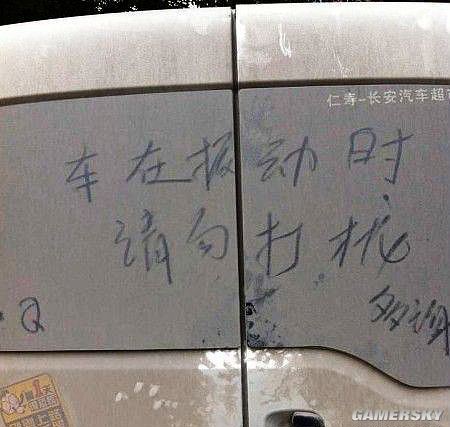 仁寿-长安汽车超市
车在振动时
请勿打扰
Q
多谢
1天
GAMERSKY